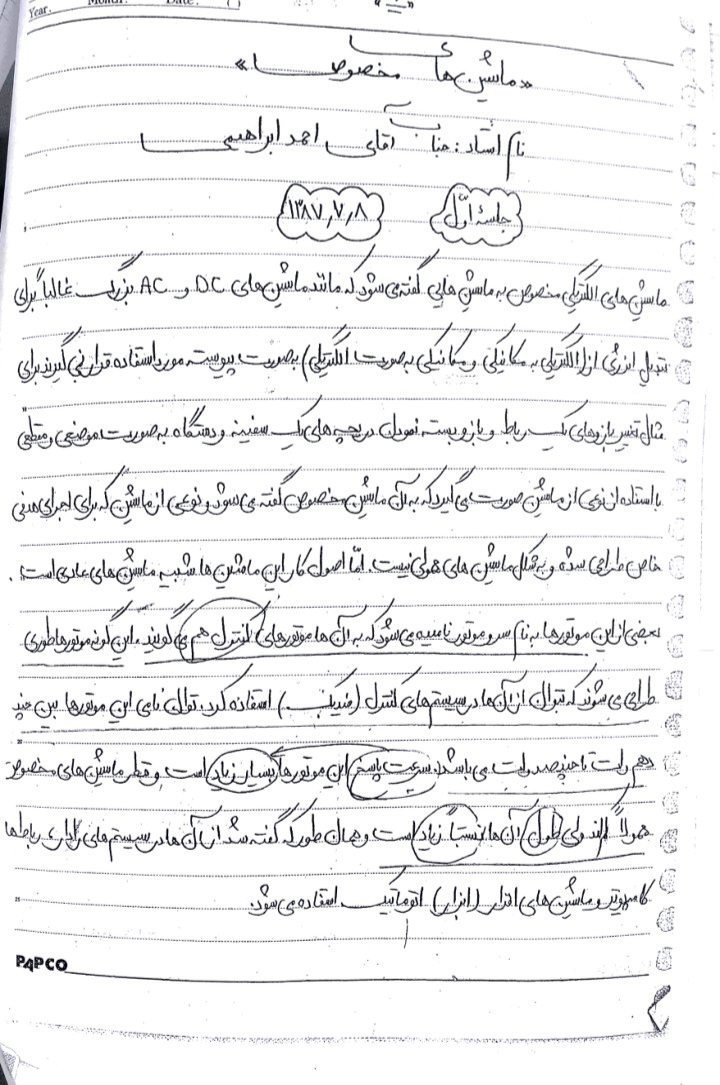 Year. Month. Date. ( )
«ماشین های مخصوص»
نام استاد: جناب آقای احمد ابراهیمی
جلسهٔ اوّل
۱۳۸۷٫۷٫۸
ماشین های الکتریکی مخصوص به ماشین هایی گفته می شود که مانند ماشین های DC و AC بزرگ غالباً برای
تبدیل انرژی از (الکتریکی به مکانیکی و مکانیکی به صورت الکتریکی) بصورت پیوسته مورد استفاده قرار نمی گیرند برای
مثال تغییر بازوهای یک رباط و باز و بسته نمودن دریچه های یک سفینه و دستگاه به صورت موضعی و مقطعی
با استفاده از نوعی از ماشین صورت می گیرد که به آن ماشین مخصوص گفته می شود و نوعی از ماشین که برای اجرای هدفی
خاص طراحی شده و به شکل ماشین های معمولی نیست. امّا اصول کار این ماشین ها شبیه ماشین های عادی است.
بعضی از این موتورها به نام سروموتور نامیده می شود که به آن ها موتورهای کنترل هم می گویند. این گونه موتورها طوری
طراحی می شوند که بتوان از آن ها در سیستم های کنترل (فیدبک) استفاده کرد. توان نامی این موتورها بین چند
دهم وات تا چند صد وات می باشد. سرعت پاسخ این موتورها بسیار زیاد است و قطر ماشین های مخصوص
معمولاً کم اند ولی طول آن ها نسبتاً زیاد است و همان طور که گفته شد از آن ها در سیستم های رادار، رباط ها
کامپیوتر و ماشین های افزار (ابزار) اتوماتیک استفاده می شود.
PAPCO